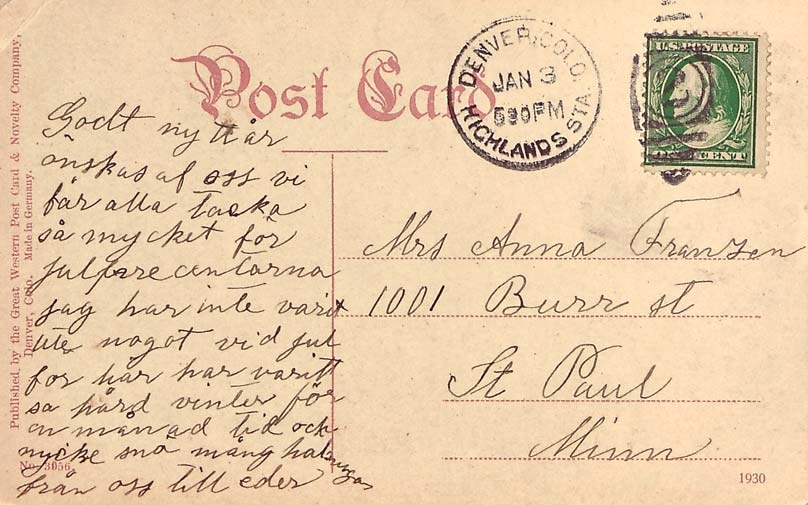 Post Card
DENVER, COLO.
JAN 3
530PM
HIGHLANDS STA.
U.S. POSTAGE
ONE CENT
Published by the Great Western Post Card & Novelty Company,
Denver, Colo. Made in Germany.
Godt nytt år
önskas af oss vi
får alla tacka
så mycket för
julprecentarna
jag har inte varit
ute nogot vid jul
for här har varitt
så hård vinter för
en månad tid och
mycke snö mång halsningar
från oss till eder
Mrs Anna Franzen
1001 Burr st
St Paul
Minn
No. 3056
1930